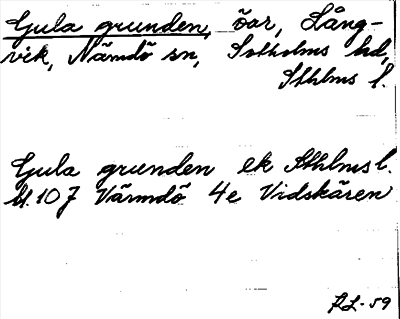 Gula grunden, öar, Lång-
vik, Nämdö sn, Sotholms hd,
Sthlms l.
Gula grunden ek Sthlms l.
Bl. 107 Värmdö 4e Vidskären
RL-59